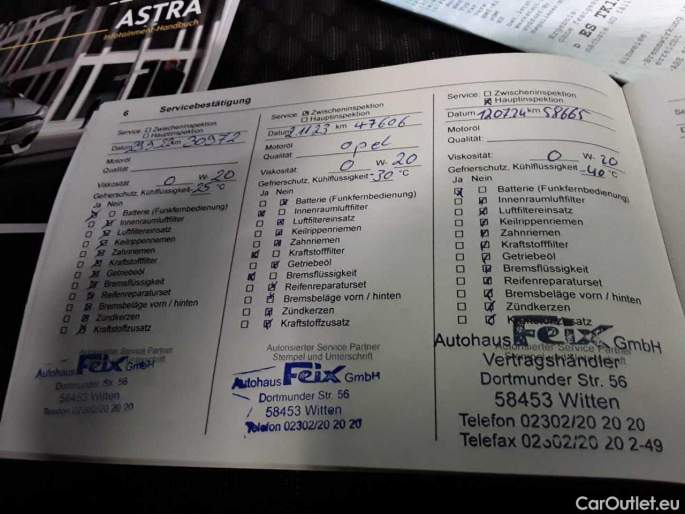 ASTRA
Infotainment-Handbuch
D ES TKI
6 Servicebestätigung
Service: Zwischeninspektion
Hauptinspektion
Datum km 30972
Motoröl
Qualität
Viskosität: 0 W- 20
Gefrierschutz, Kühlflüssigkeit -25 °C
Ja Nein
Batterie (Funkfernbedienung)
Innenraumluftfilter
Luftfiltereinsatz
Keilrippenriemen
Zahnriemen
Kraftstofffilter
Getriebeöl
Bremsflüssigkeit
Reifenreparaturset
Bremsbeläge vorn / hinten
Zündkerzen
Kraftstoffzusatz
Autorisierter Service Partner
Stempel und Unterschrift
Autohaus Feix GmbH
Dortmunder Str. 56
58453 Witten
Telefon 02302/20 20 20
Service: Zwischeninspektion
Hauptinspektion
Datum 2.11.23 km 47606
Motoröl
Qualität: Opel
Viskosität: 0 W- 20
Gefrierschutz, Kühlflüssigkeit -30 °C
Ja Nein
Batterie (Funkfernbedienung)
Innenraumluftfilter
Luftfiltereinsatz
Keilrippenriemen
Zahnriemen
Kraftstofffilter
Getriebeöl
Bremsflüssigkeit
Reifenreparaturset
Bremsbeläge vorn / hinten
Zündkerzen
Kraftstoffzusatz
Autorisierter Service Partner
Stempel und Unterschrift
Autohaus Feix GmbH
Dortmunder Str. 56
58453 Witten
Telefon 02302/20 20 20
Service: Zwischeninspektion
Hauptinspektion
Datum 120724 km 58665
Motoröl
Qualität:
Viskosität: 0 W- 20
Gefrierschutz, Kühlflüssigkeit -40 °C
Ja Nein
Batterie (Funkfernbedienung)
Innenraumluftfilter
Luftfiltereinsatz
Keilrippenriemen
Zahnriemen
Kraftstofffilter
Getriebeöl
Bremsflüssigkeit
Reifenreparaturset
Bremsbeläge vorn / hinten
Zündkerzen
Kraftstoffzusatz
Autorisierter Service Partner
Stempel und Unterschrift
Autohaus Feix GmbH
Vertragshändler
Dortmunder Str. 56
58453 Witten
Telefon 02302/20 20 20
Telefax 02302/20 20 2-49
CarOutlet.eu